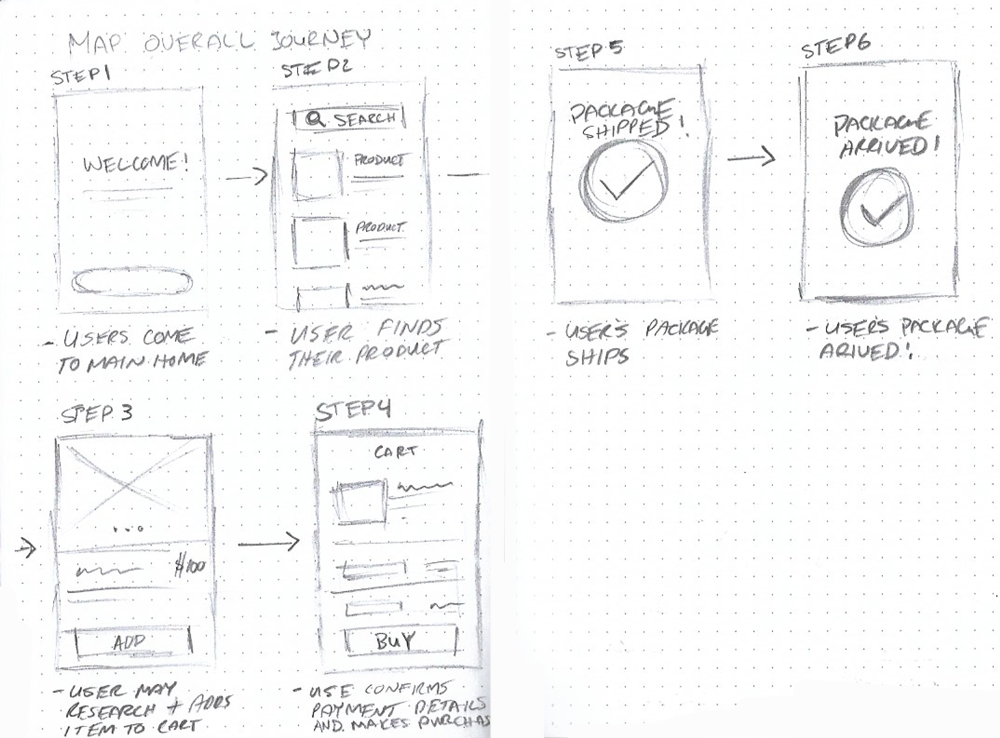 MAP OVERALL JOURNEY
STEP 1
WELCOME!
- USERS COME
TO MAIN HOME
STEP 2
SEARCH
PRODUCT
PRODUCT
- USER FINDS
THEIR PRODUCT
STEP 3
$100
ADD
- USER MAY
RESEARCH + ADDS
ITEM TO CART
STEP 4
CART
BUY
- USE CONFIRMS
PAYMENT DETAILS
AND MAKES PURCHAS
STEP 5
PACKAGE
SHIPPED!
- USER'S PACKAGE
SHIPS
STEP 6
PACKAGE
ARRIVED!
- USER'S PACKAGE
ARIVED!